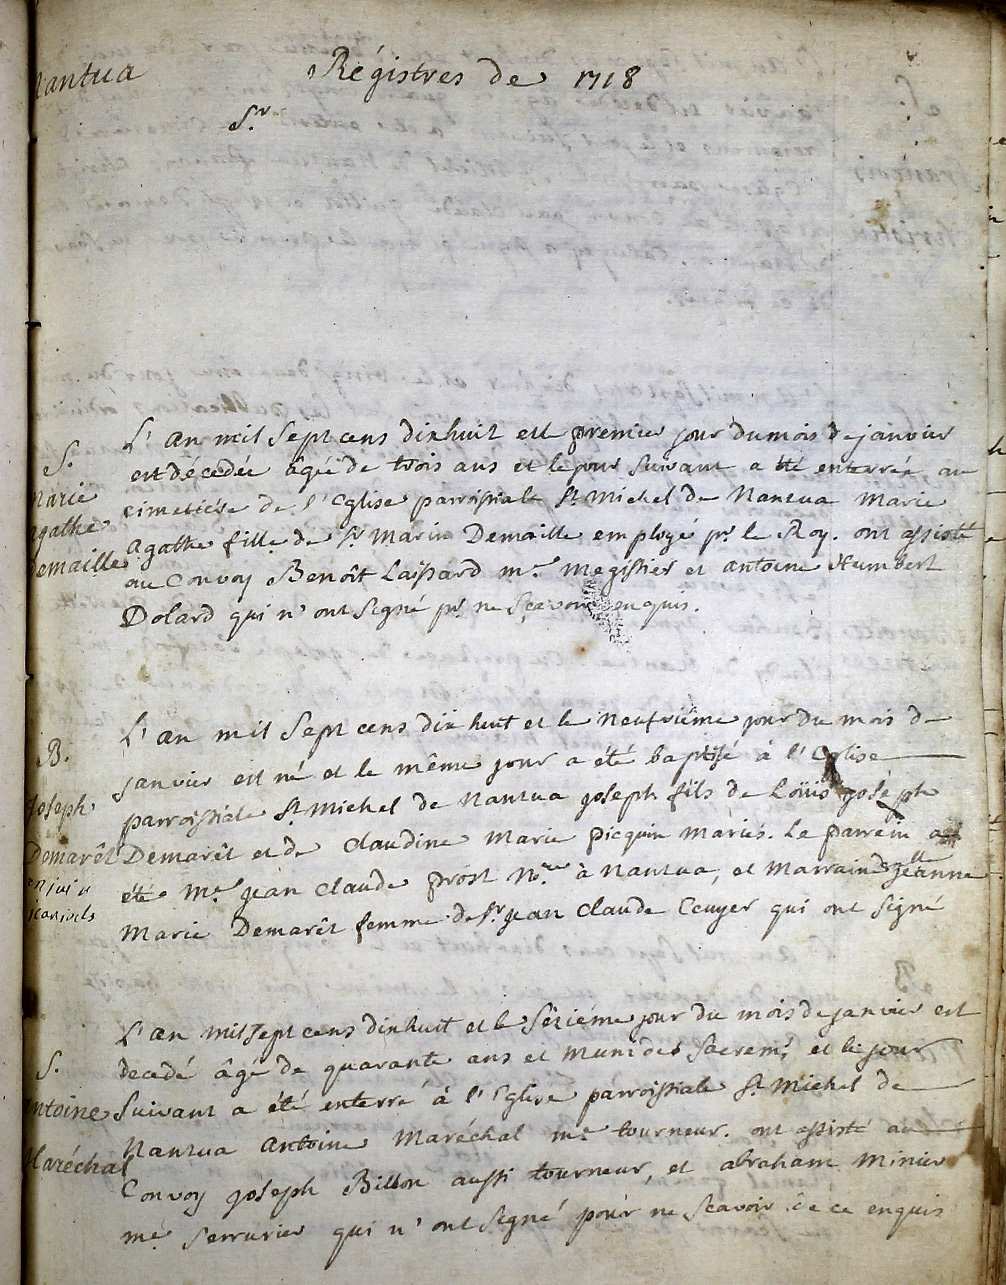 Nantua
Régistres de 1718
Sr
S.
Marie
Agathe
Demaille
L'an mil Sept cens dix huit et le premier jour du mois de janvier
est décedée âgée de trois ans et le jour suivant a été enterrée au
cimetiére de l'Eglise parroissiale St Michel de Nantua Marie
Agathe fille de Sr Marin Demaille employé pr le Roy. ont assisté
au Convoy Benoît Laissard me megissier et antoine Humbert
Dolard qui n'ont signé pr ne sçavoir enquis.
B.
Joseph
Demarêt
L'an mil Sept cens dix huit et le neufviême jour du mois de
janvier est né et le même jour a été baptisé à l'Eglise
parroissiale St Michel de Nantua joseph fils de Loüis joseph
Demarêt et de Claudine Marie picquin mariés. Le parrein a
été Me jean Claude prost Nre à Nantua, et Marraine delle jeanne
Marie Demarêt femme de Sr jean Claude Ecuyer qui ont signé
S.
Antoine
Maréchal
L'an mil Sept cens dix huit et le séziéme jour du mois de janvier est
decedé âgé de quarante ans et muni des Sacremts et le jour
Suivant a été enterré à l'Eglise parroissiale St Michel de
Nantua Antoine Maréchal me tourneur. ont assisté au
Convoy joseph Billon aussi tourneur, et abraham Minier
me serrurier qui n'ont signé pour ne scavoir de ce enquis